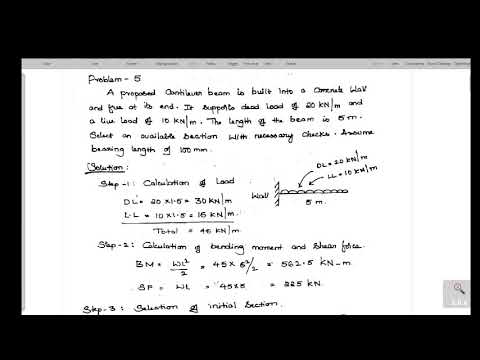 Problem - 5
A proposed Cantilever beam is built into a Concrete Wall
and free at its end. It supports dead load of 20 KN/m and
a live load of 10 KN/m. The length of the beam is 5 m.
Select an available Section with necessary checks. Assume
bearing length of 100 mm.
Solution:
Step-1: Calculation of Load
DL = 20 x 1.5 = 30 KN/m
L.L = 10 x 1.5 = 15 KN/m
Total = 45 KN/m
Wall
DL = 20 KN/m
LL = 10 KN/m
5 m.
Step-2: Calculation of bending moment and Shear force.
BM = WL²/2 = 45 x 5²/2 = 562.5 KN-m
SF = WL = 45x5 = 225 KN.
Step-3: Selection of initial Section.